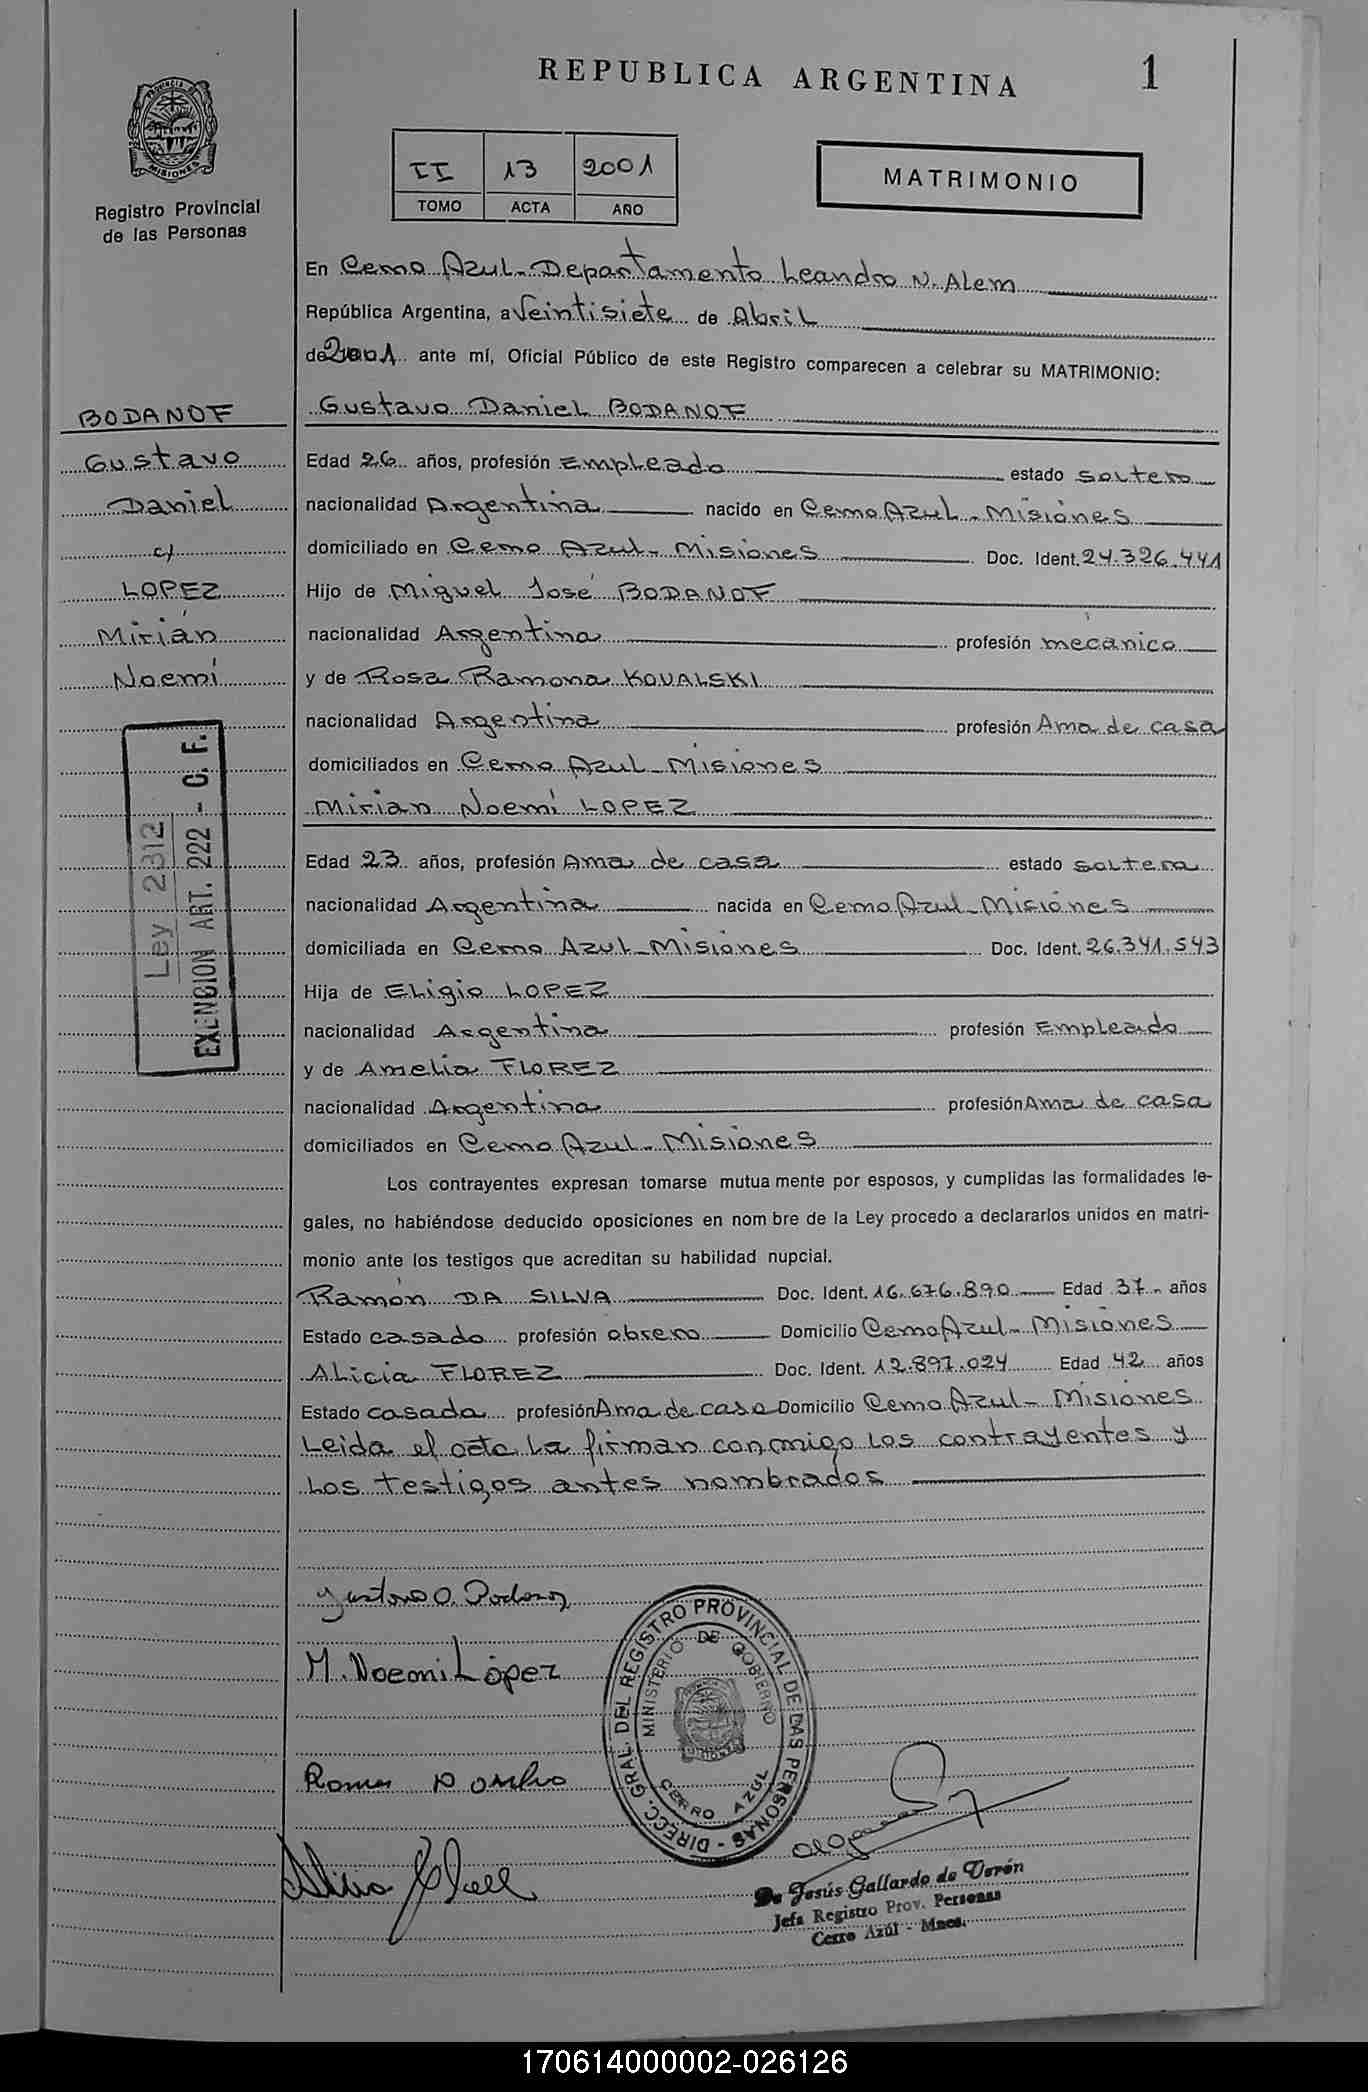 REPUBLICA ARGENTINA
1
PROVINCIA DE
MISIONES
Registro Provincial
de las Personas
II 13 2001
TOMO ACTA AÑO
MATRIMONIO
En Cerro Azul - Departamento Leandro N. Alem
República Argentina, a Veintisiete de Abril
de 2001 ante mí, Oficial Público de este Registro comparecen a celebrar su MATRIMONIO:
Gustavo Daniel BODANOF
Edad 26 años, profesión Empleado estado soltero
nacionalidad Argentina nacido en Cerro Azul - Misiones
domiciliado en Cerro Azul - Misiones Doc. Ident. 24.326.441
Hijo de Miguel José BODANOF
nacionalidad Argentina profesión mecánico
y de Rosa Ramona KOVALSKI
nacionalidad Argentina profesión Ama de casa
domiciliados en Cerro Azul - Misiones
Mirian Noemí LOPEZ
Edad 23 años, profesión Ama de casa estado soltera
nacionalidad Argentina nacida en Cerro Azul - Misiones
domiciliada en Cerro Azul - Misiones Doc. Ident. 26.341.543
Hija de Eligio LOPEZ
nacionalidad Argentina profesión Empleado
y de Amelia FLOREZ
nacionalidad Argentina profesión Ama de casa
domiciliados en Cerro Azul - Misiones
Los contrayentes expresan tomarse mutua mente por esposos, y cumplidas las formalidades le-
gales, no habiéndose deducido oposiciones en nom bre de la Ley procedo a declararlos unidos en matri-
monio ante los testigos que acreditan su habilidad nupcial.
Ramón DA SILVA Doc. Ident. 16.676.890 Edad 37 años
Estado casado profesión obrero Domicilio Cerro Azul - Misiones
Alicia FLOREZ Doc. Ident. 12.897.024 Edad 42 años
Estado casada profesión Ama de casa Domicilio Cerro Azul - Misiones
Leida el acta la firman conmigo los contrayentes y
los testigos antes nombrados
BODANOF
Gustavo
Daniel
c/
LOPEZ
Mirián
Noemí
Ley 2312
EXENCION ART. 222 - C. F.
M. Noemi López
DIRECC. GRAL. DEL REGISTRO PROVINCIAL DE LAS PERSONAS -
MINISTERIO DE GOBIERNO
MISIONES
CERRO AZUL
De Jesús Gallardo de Verón
Jefa Registro Prov. Personas
Cerro Azúl - Mnes.
170614000002-026126